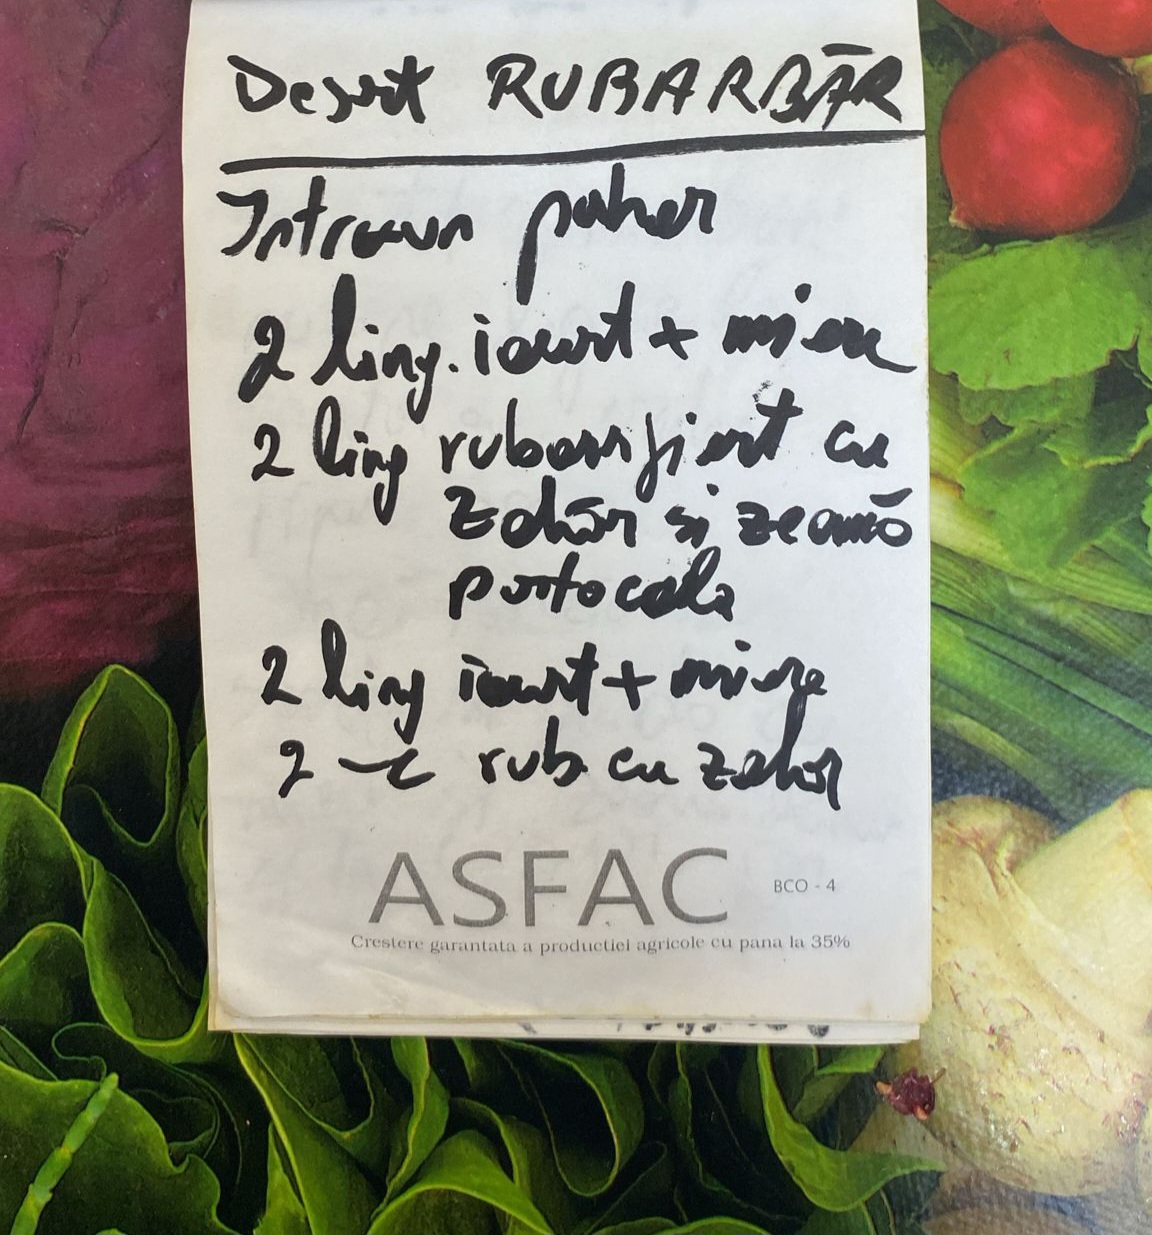 Desert RUBARBĂR
Intraun pahar
2 ling. iaurt + miere
2 ling rubarb fiert cu
zahăr si zeamă
portocala
2 ling iaurt + miere
2 rub cu zahar
ASFAC
BCO - 4
Crestere garantata a productiei agricole cu pana la 35%